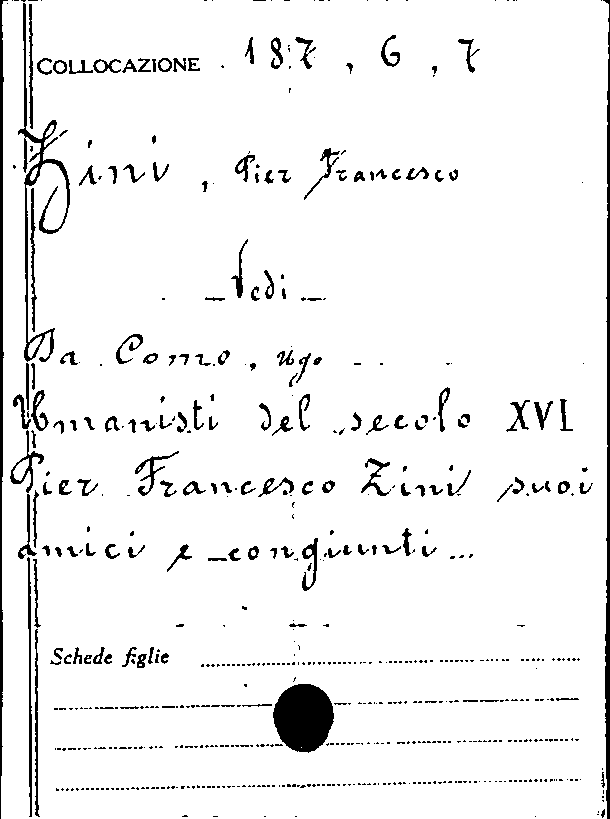 COLLOCAZIONE 187, 6, 7
Zini, Pier Francesco
- Vedi -
Da Como, Ugo
Umanisti del secolo XVI
Pier Francesco Zini suoi
amici e congiunti...
Schede figlie